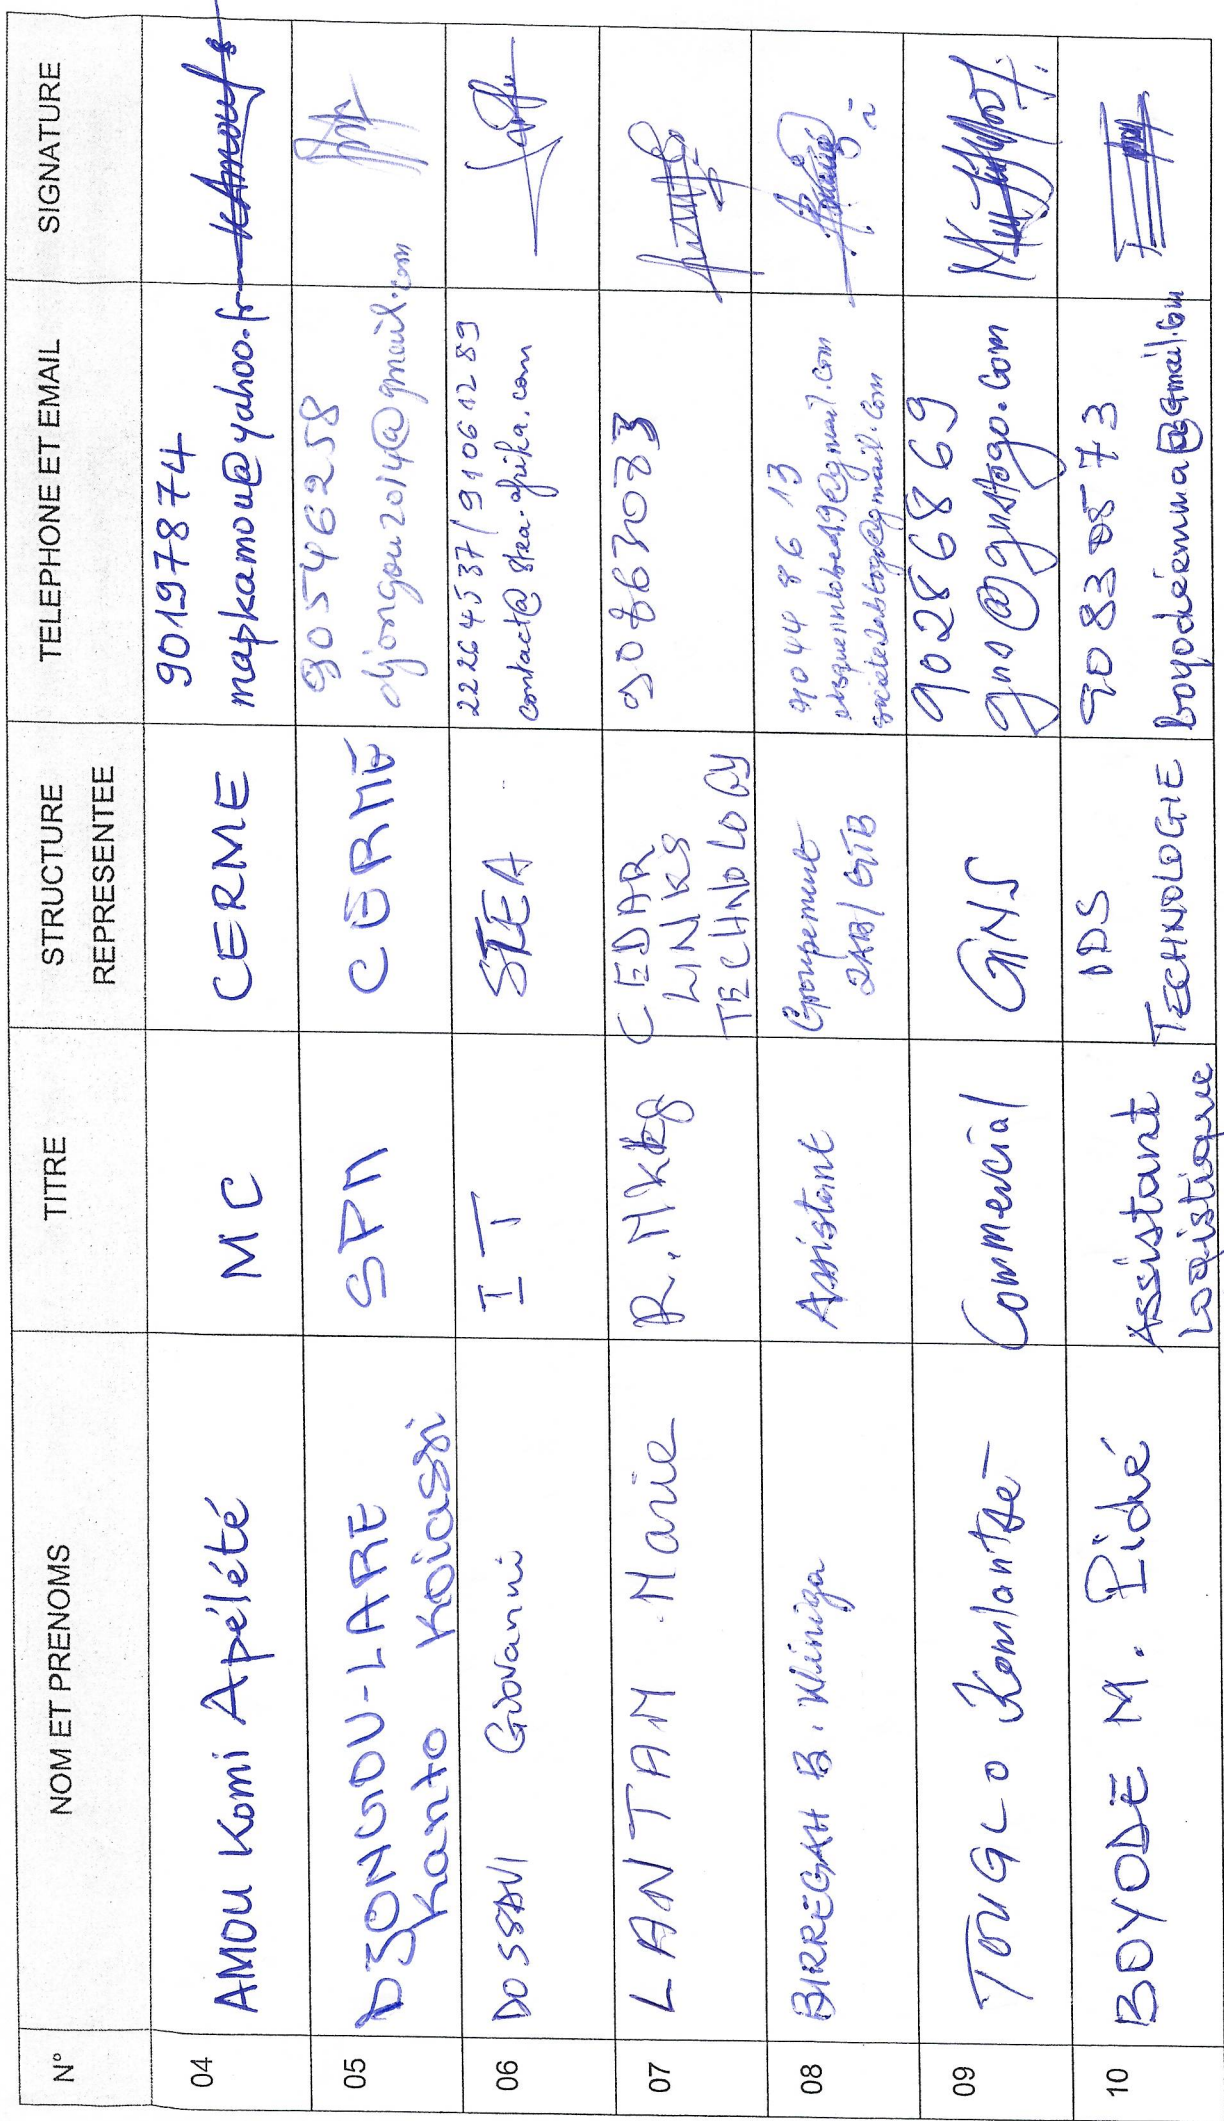 N° NOM ET PRENOMS TITRE STRUCTURE REPRESENTEE TELEPHONE ET EMAIL SIGNATURE
04 AMOU Komi Apélété MC CERME 90197874
mapkamou@yahoo.fr
05 DJONGOU-LARE SPM CERME 90546258
Kanto Koiassi djongou2014@gmail.com
06 DOSSAVI Giovanni IT STEA 22264537/91061289
contact@stea-afrika.com
07 LANTAM Marie R.Mktg CEDAR 90863083
LINKS
TECHNOLOGY
08 BIRREGAH B. Winiga Assistant Groupement 90448613
2AB/GTB
09 TOUGLO Komlantsè Commercial GNS 90286869
gns@gnstogo.com
10 BOYODE M. Pidié Assistant IDS 90830573
Logistique TECHNOLOGIE boyodeemma@gmail.com